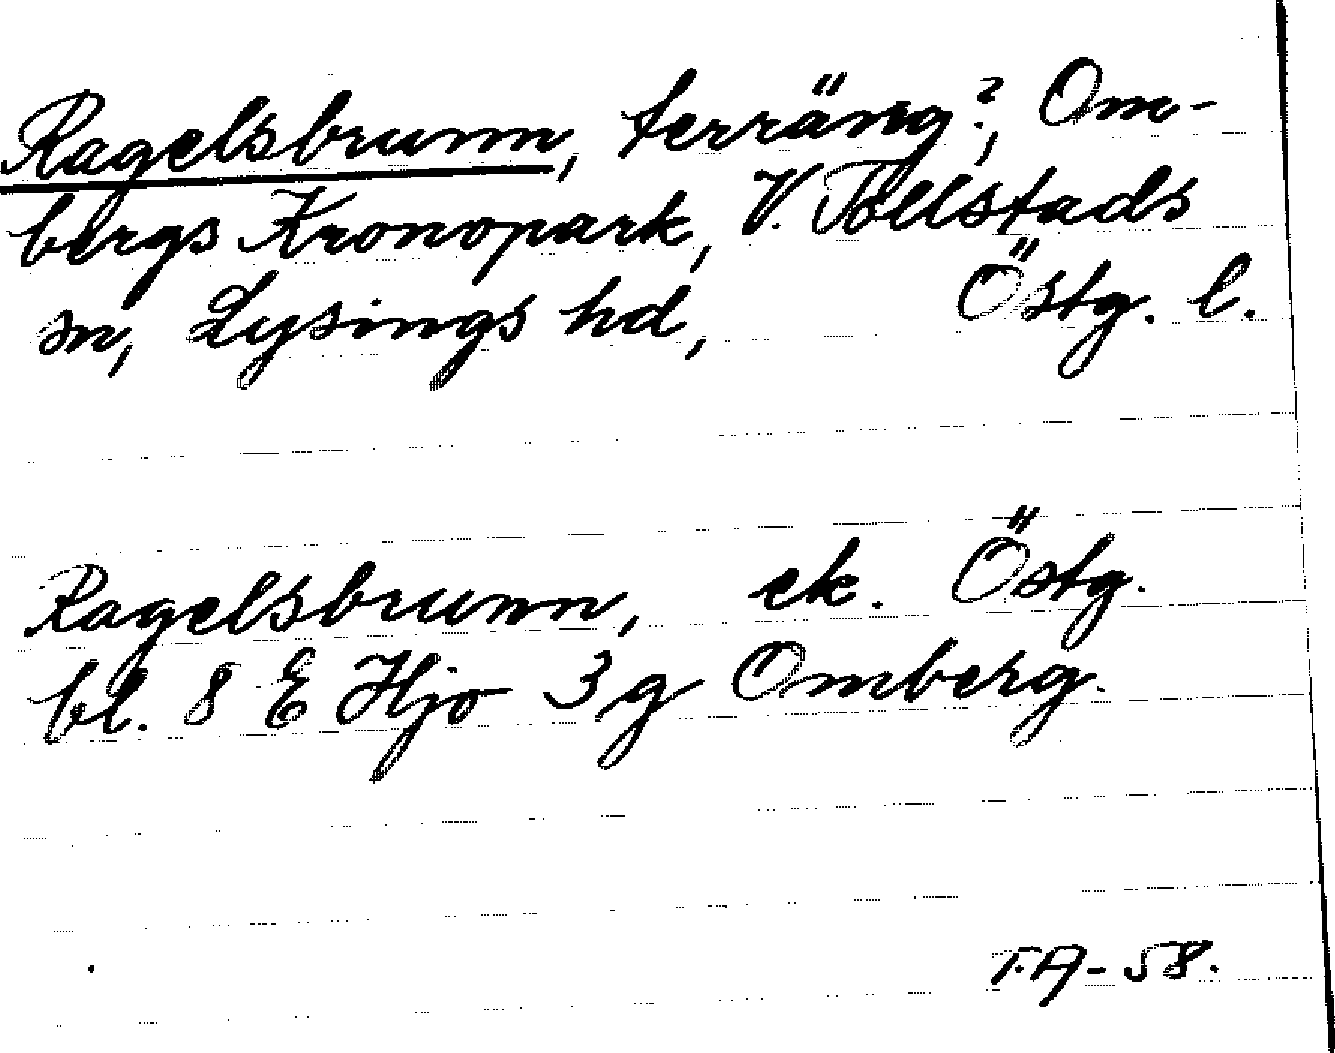 Ragelsbrunn, terräng?, Om-
bergs Kronopark, V. Tollstads
sn, Lysings hd, Östg. l.
Ragelsbrunn, ek. Östg.
bl. 8 E Hjo 3 g Omberg.
T.A-58.